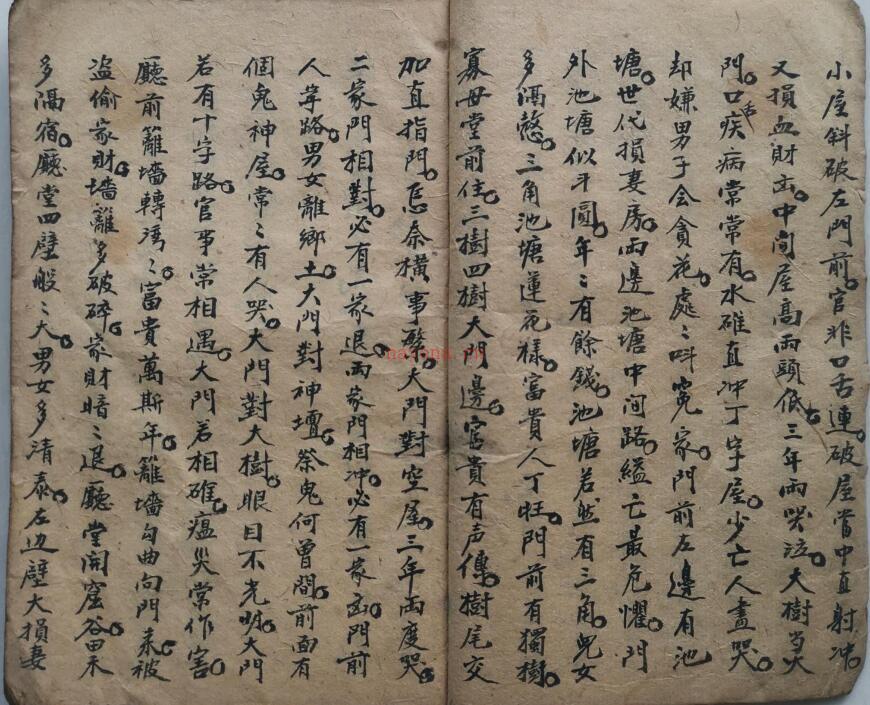 小屋斜破左門前。官非口舌連。破屋當中直射冲。
又損血財出。中间屋高兩頭低。三年兩哭泣。大樹当大
門。口舌疾病常常有。水碓直冲丁字屋。少亡人盡哭。
却嫌男子会貪花。處〻叫冤家。門前左邊有池
塘。世代損妻房。兩邊池塘中间路。縊亡最危懼。門
外池塘似斗圓。年〻有餘錢。池塘若然有三角。兒女
多隔愁。三角池塘蓮花樣。富貴人丁旺。門前有獨樹。
寡母堂前住。三樹四樹大門邊。官貴有声傳。樹尾交
加直指門。忌奈橫事發。大門對空屋。三年兩度哭。
二家門相對。必有一家退。兩家門相冲。必有一家凶。門前
人字路。男女離鄉土。大門對神壇。祭鬼何曾間。前面有
個鬼神屋。常〻有人哭。大門對大樹。眼目不光明。大門
若有十字路。官事常相遇。大門若相碓。瘟災常作害。
廳前籬墻轉湾〻。富貴萬斯年。籬墻勾曲向門来。被
盗偷家財。墻籬多破碎。家財暗〻退。廳堂開窟谷
多隔宿。廳堂四壁般〻大。男女多清泰。左边壁大損妻